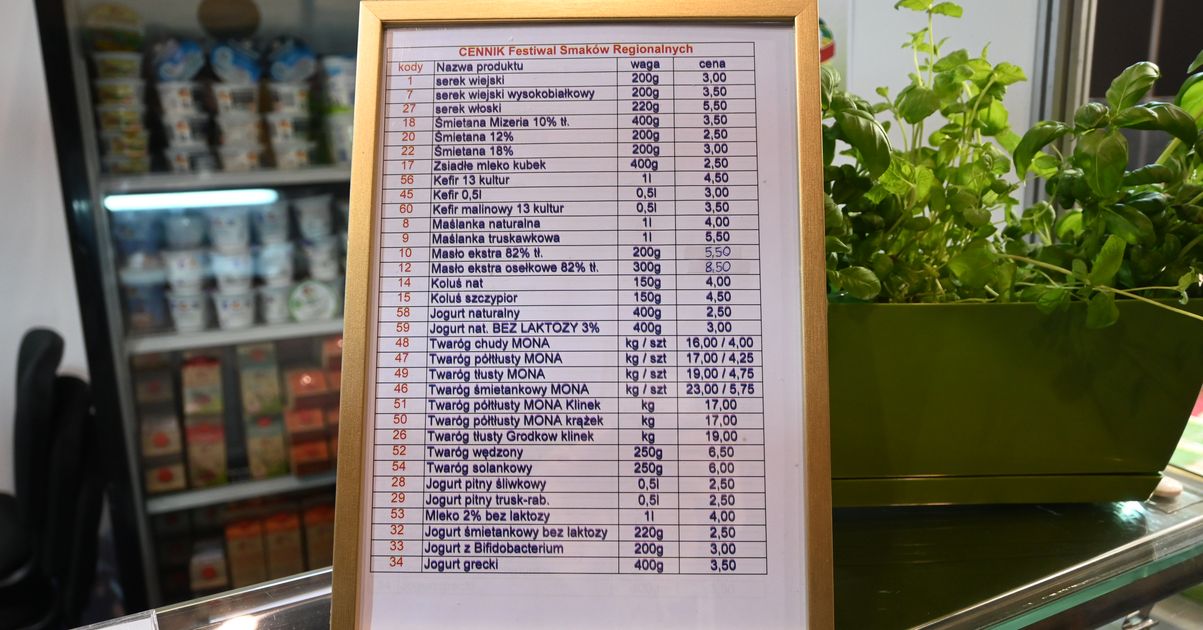 CENNIK Festiwal Smaków Regionalnych
kody Nazwa produktu waga cena
1 serek wiejski 200g 3,00
7 serek wiejski wysokobiałkowy 200g 3,50
27 serek włoski 220g 5,50
18 Śmietana Mizeria 10% tł. 400g 3,50
20 Śmietana 12% 200g 2,50
22 Śmietana 18% 200g 3,00
17 Zsiadłe mleko kubek 400g 2,50
56 Kefir 13 kultur 1l 4,50
45 Kefir 0,5l 0,5l 3,00
60 Kefir malinowy 13 kultur 0,5l 3,50
8 Maślanka naturalna 1l 4,00
9 Maślanka truskawkowa 1l 5,50
10 Masło ekstra 82% tł. 200g 5,50
12 Masło ekstra osełkowe 82% tł. 300g 8,50
14 Koluś nat 150g 4,00
15 Koluś szczypior 150g 4,50
58 Jogurt naturalny 400g 2,50
59 Jogurt nat. BEZ LAKTOZY 3% 400g 3,00
48 Twaróg chudy MONA kg / szt 16,00 / 4,00
47 Twaróg półtłusty MONA kg / szt 17,00 / 4,25
49 Twaróg tłusty MONA kg / szt 19,00 / 4,75
46 Twaróg śmietankowy MONA kg / szt 23,00 / 5,75
51 Twaróg półtłusty MONA Klinek kg 17,00
50 Twaróg półtłusty MONA krążek kg 17,00
26 Twaróg tłusty Grodkow klinek kg 19,00
52 Twaróg wędzony 250g 6,50
54 Twaróg solankowy 250g 6,00
28 Jogurt pitny śliwkowy 0,5l 2,50
29 Jogurt pitny trusk-rab. 0,5l 2,50
53 Mleko 2% bez laktozy 1l 4,00
32 Jogurt śmietankowy bez laktozy 220g 2,50
33 Jogurt z Bifidobacterium 200g 3,00
34 Jogurt grecki 400g 3,50